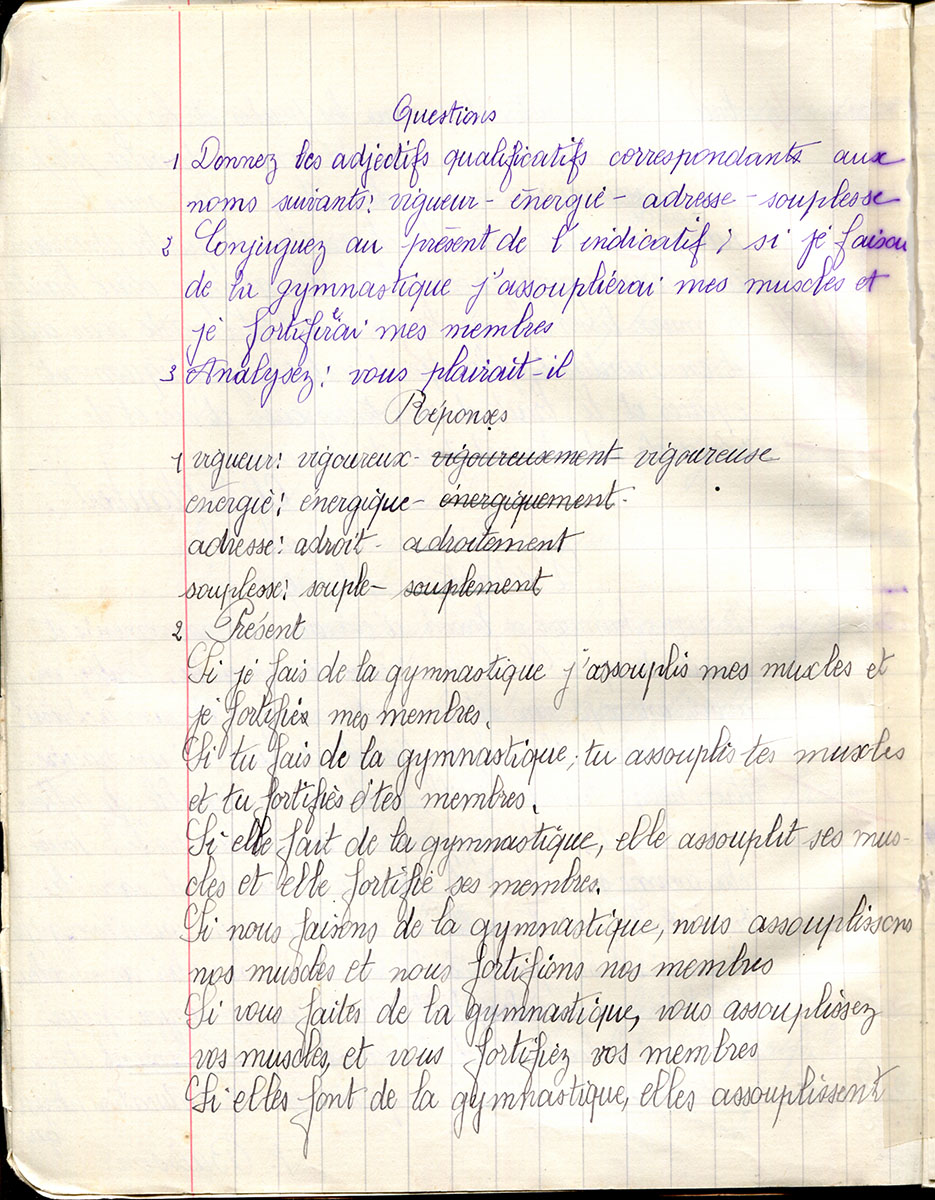 Questions
1 Donnez les adjectifs qualificatifs correspondants aux
noms suivants: vigueur - énergie - adresse - souplesse
2 Conjuguez au présent de l'indicatif: si je faisai
de la gymnastique j'assouplierai mes muscles et
je fortifierai mes membres
3 Analysez: vous plairait-il
Réponses
1 vigueur: vigoureux - vigoureusement vigoureuse
énergie: énergique - énergiquement.
adresse: adroit - adroitement
souplesse: souple - souplement
2 Présent
Si je fais de la gymnastique j'assouplis mes muscles et
je fortifie mes membres.
Si tu fais de la gymnastique, tu assouplis tes muscles
et tu fortifies tes membres.
Si elle fait de la gymnastique, elle assouplit ses mus-
cles et elle fortifie ses membres.
Si nous faisons de la gymnastique, nous assouplissons
nos muscles et nous fortifions nos membres
Si vous faites de la gymnastique, vous assouplissez
vos muscles, et vous fortifiez vos membres
Si elles font de la gymnastique, elles assouplissent